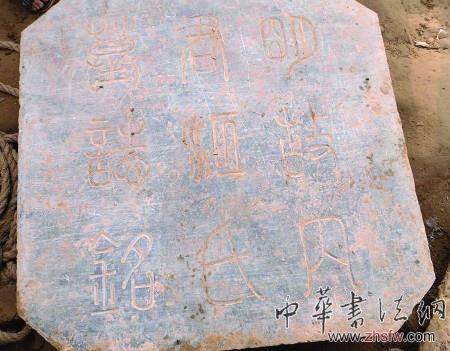 明故内
君氏
墓誌銘
中華書法網
www.zhsfw.com